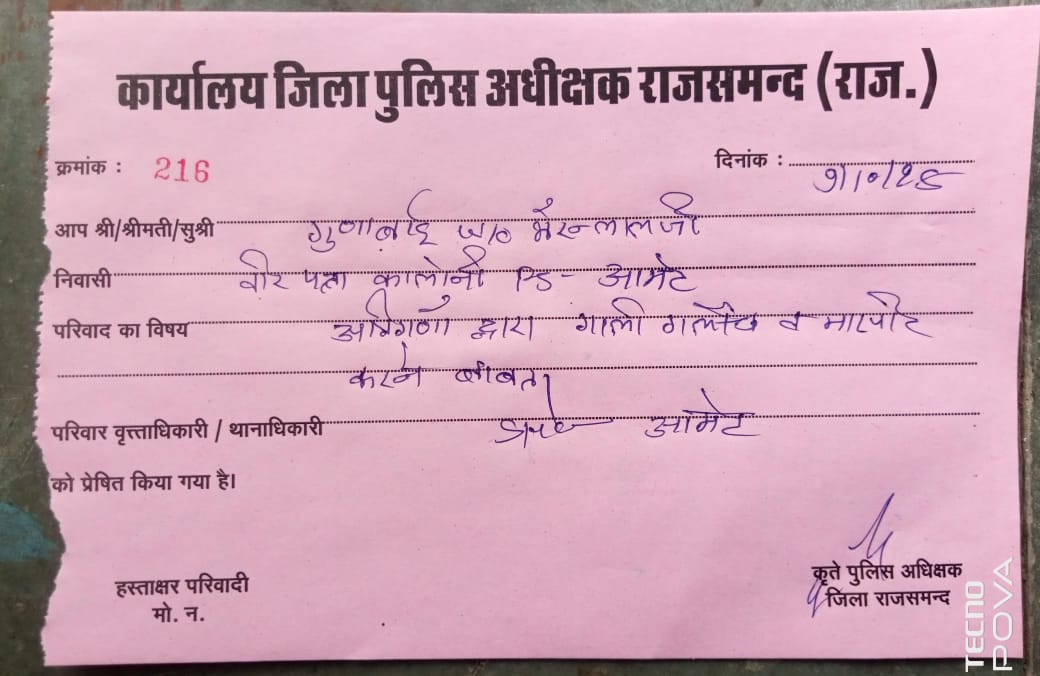 कार्यालय जिला पुलिस अधीक्षक राजसमन्द (राज.)
क्रमांक : 216 दिनांक :
आप श्री/श्रीमती/सुश्री गुणाबाई w/o भैरूलालजी
निवासी वीर पत्ता कालोनी PS- आमेट
परिवाद का विषय द्वारा गाली गलौच व मारपीट
करने बाबत।
परिवार वृत्ताधिकारी / थानाधिकारी आमेट
को प्रेषित किया गया है।
हस्ताक्षर परिवादी
मो. न.
कृते पुलिस अधिक्षक
जिला राजसमन्द
TECNO
POVA